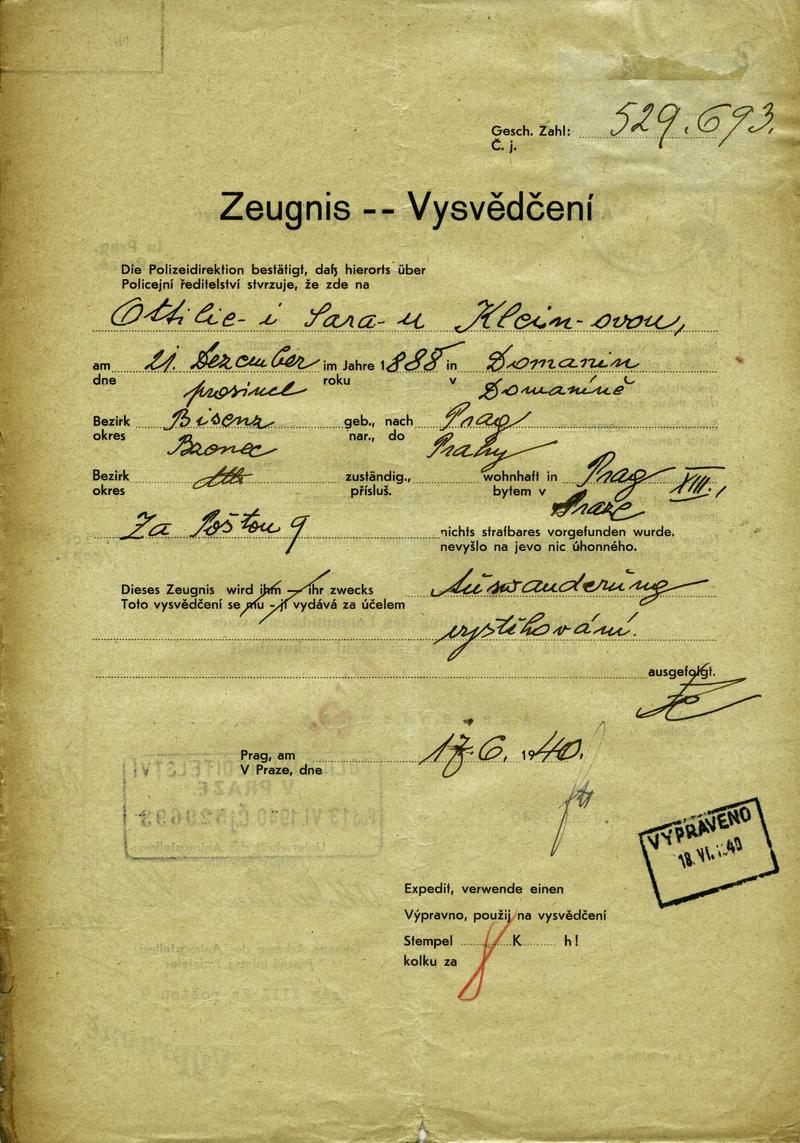 Gesch. Zahl: 529.693.
Č. j.
Zeugnis -- Vysvědčení
Die Polizeidirektion bestätigt, daß hierorts über
Policejní ředitelství stvrzuje, že zde na
Ottilie-i Sara-u Klein-ovou,
am 21. Dezember im Jahre 1888 in Domanin
dne prosince roku v Domaníně
Bezirk Bisenz geb., nach Prag
okres Bzenec nar., do Prahy
Bezirk zuständig., wohnhaft in Prag XIII.,
okres přísluš. bytem v Praze
Za Poštou 9 nichts strafbares vorgefunden wurde.
nevyšlo na jevo nic úhonného.
Dieses Zeugnis wird ihm — ihr zwecks Auswanderung
Toto vysvědčení se mu - jí vydává za účelem
vystěhování.
ausgefolgt.
Prag, am 17.6. 1940.
V Praze, dne
VYPRAVENO
18. VI. 1940
Expedit, verwende einen
Výpravno, použij na vysvědčení
Stempel 8 K h!
kolku za